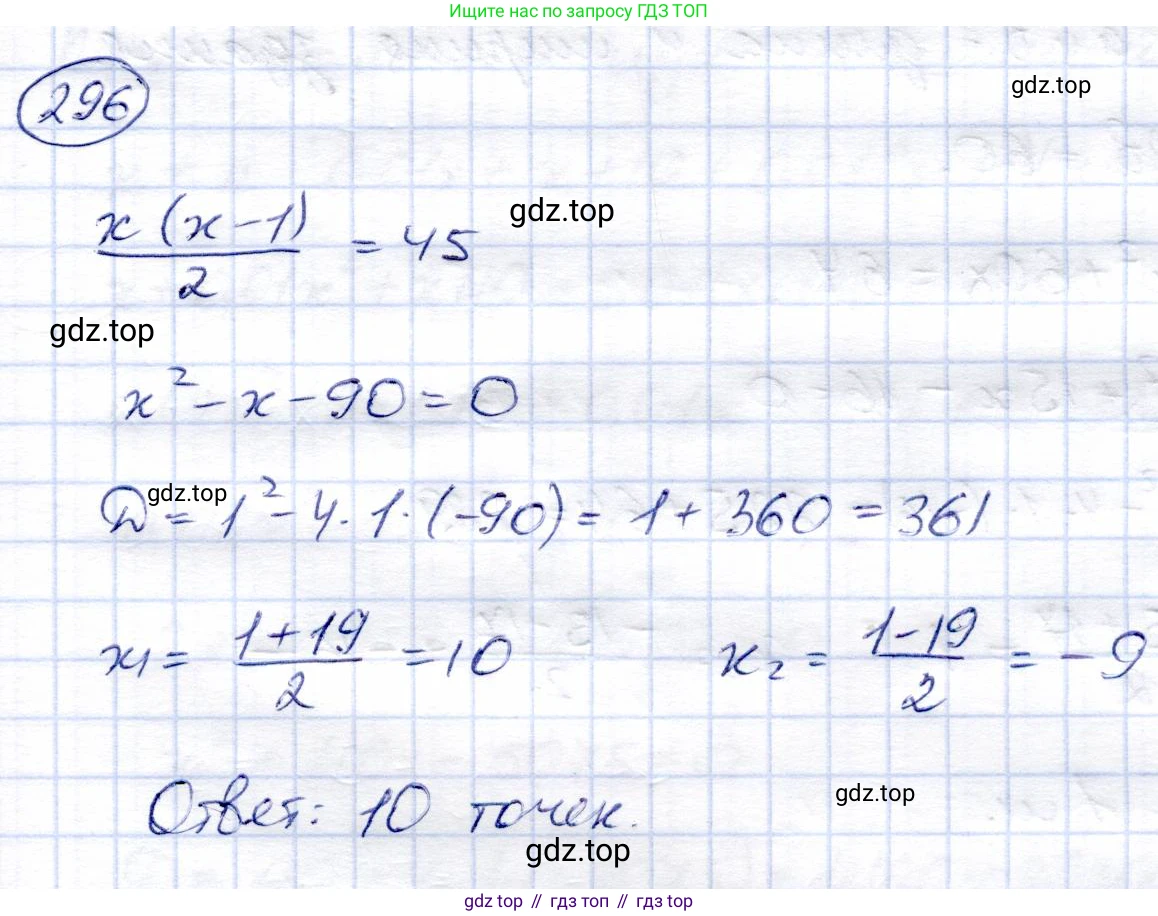 Ищите нас по запросу ГДЗ ТОП
296
gdz.top
x (x-1) / 2 = 45
gdz.top
gdz.top
x² - x - 90 = 0
gdz.top
D = 1² - 4 · 1 · (-90) = 1 + 360 = 361
x₁ = (1+19)/2 = 10    x₂ = (1-19)/2 = -9
gdz.top
Ответ: 10 точек.
gdz.top
gdz.top // гдз топ // гдз top